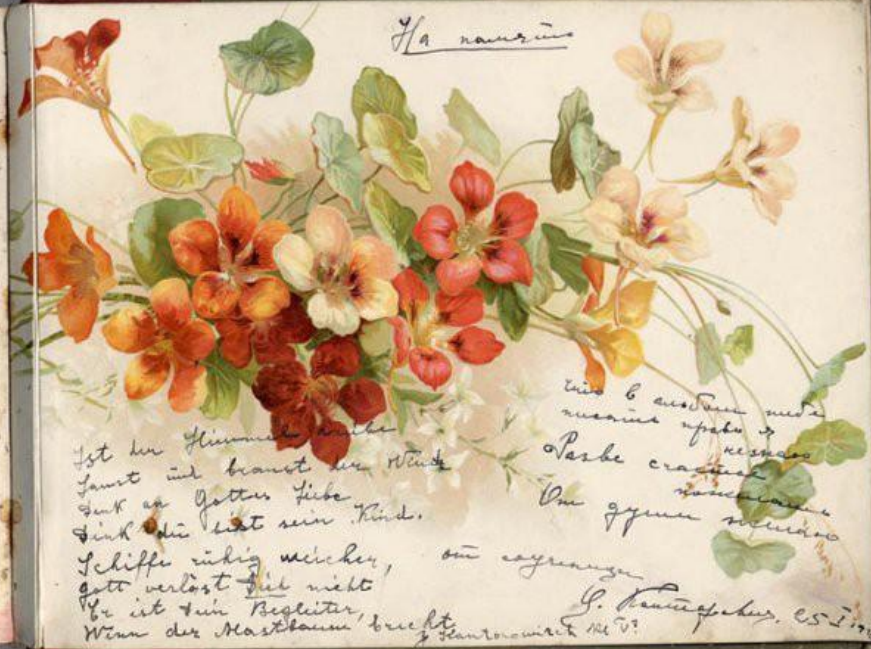 На память
Ist der Himmel trübe
Saust und braust der Wind
Denk an Gottes Liebe
Denk du bist sein Kind.
Schiffe ruhig weiter,
Gott verläst Dich nicht
Er ist Dein Begleiter,
Wenn der Mastbaum bricht
Что в альбом тебе
писать право я
не знаю
Разве счастья
пожелать
От души желаю
от соученицы